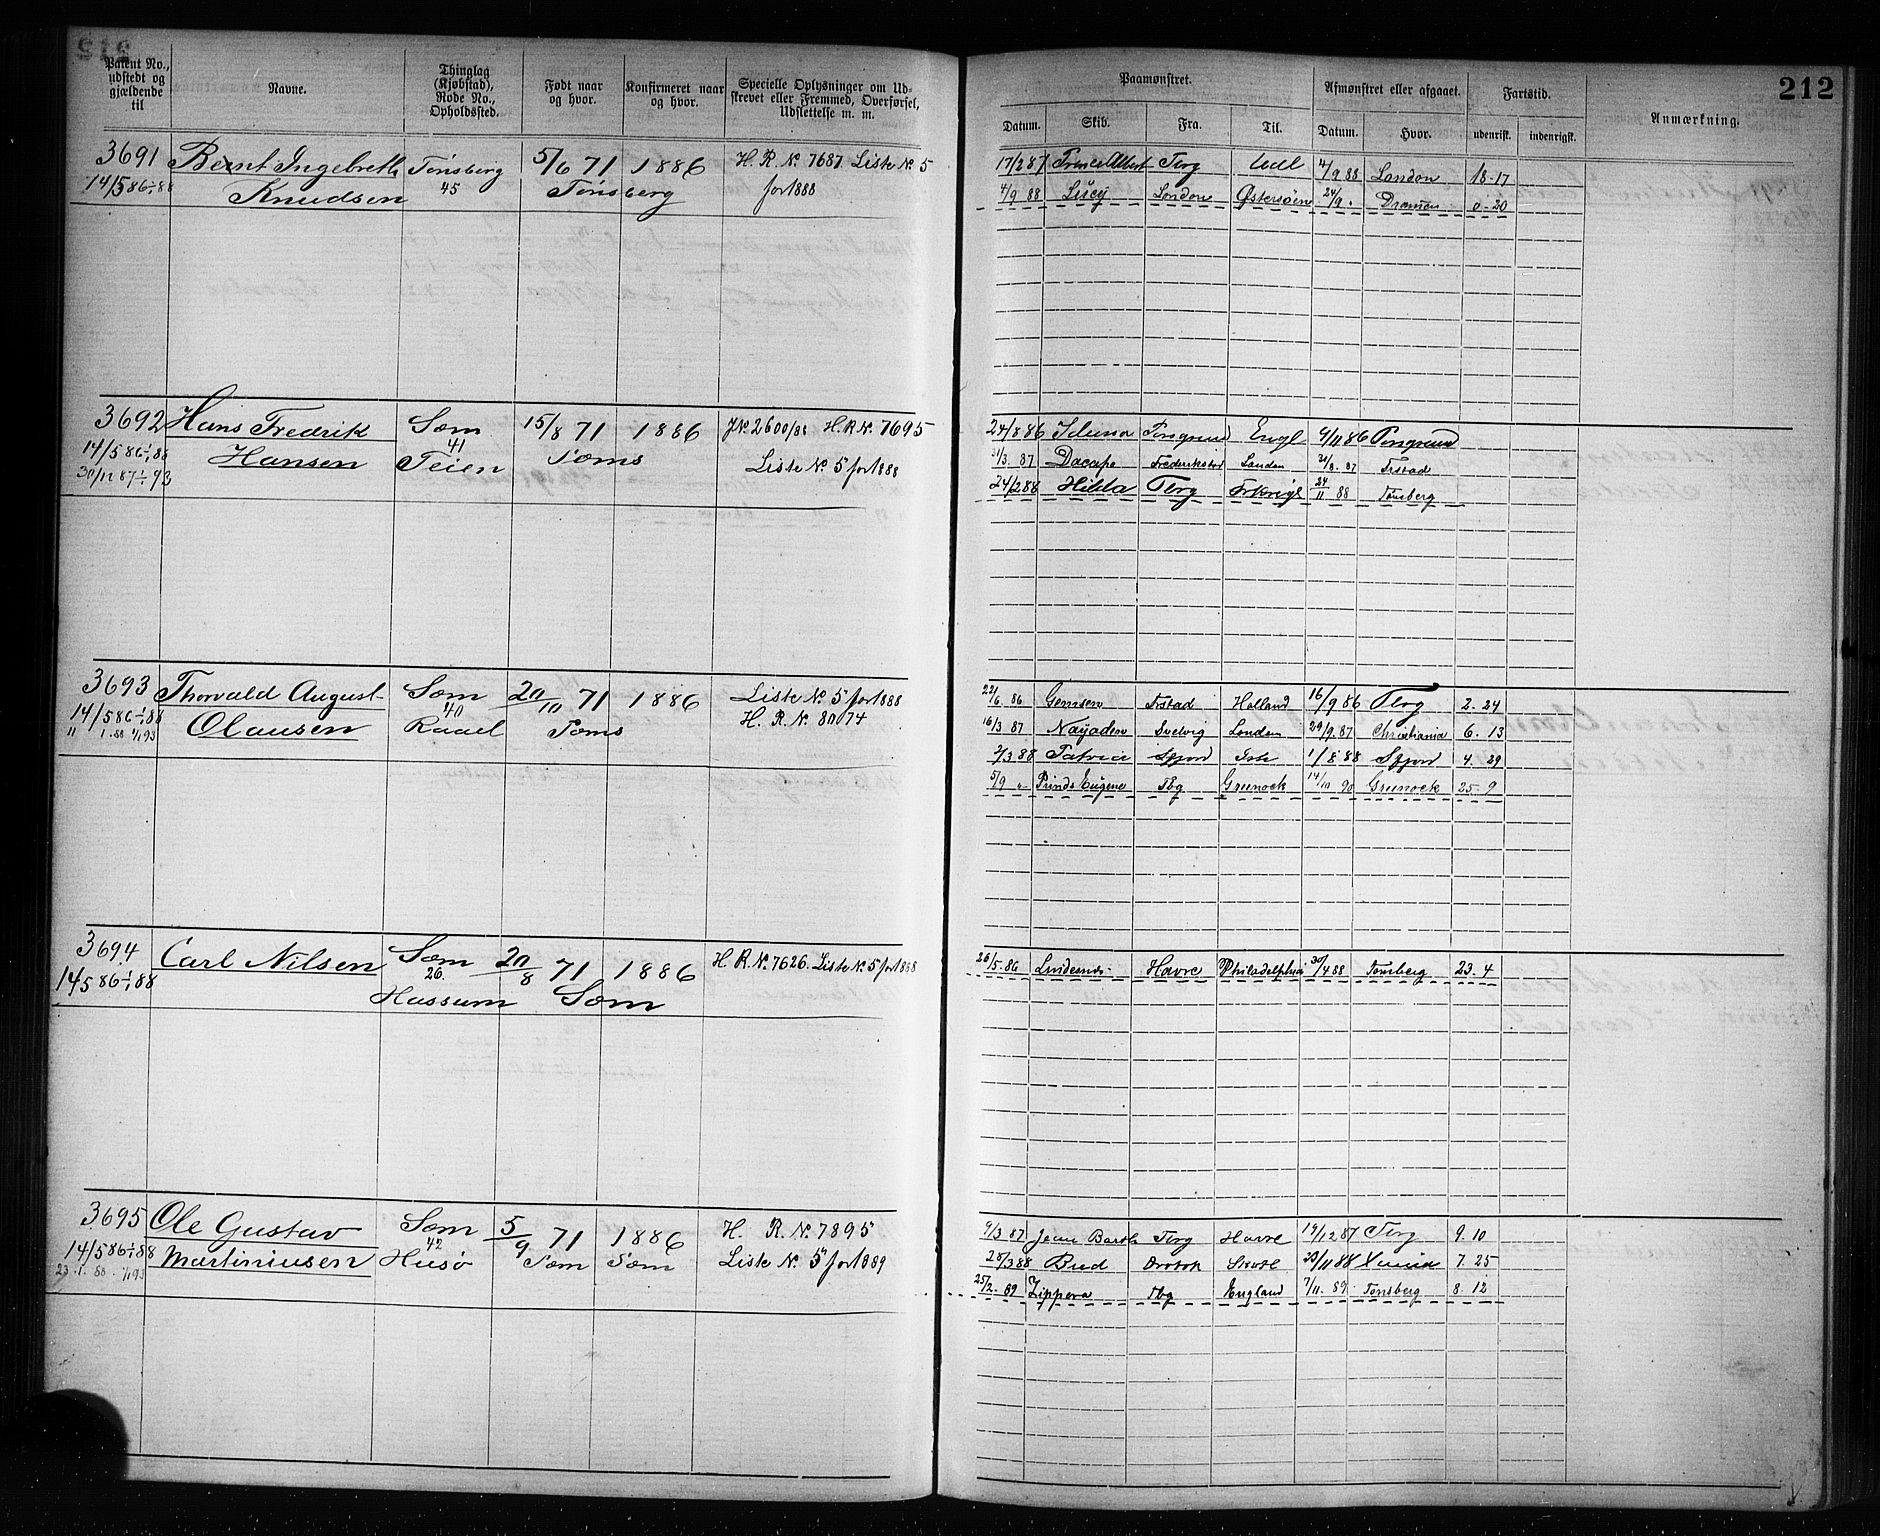 Patent No., udstedt og gjældende til
Navne.
Thinglag (Kjøbstad), Rode No., Opholdssted.
Født naar og hvor.
Konfirmeret naar og hvor.
Specielle Oplysninger om Udskrevet eller Fremmed, Overførsel, Udslettelse m. m.
Paamønstret.
Afmønstret eller afgaaet.
Fartstid.
Anmærkning.
212
Datum. Skib. Fra. Til. Datum. Hvor. udenriks. indenrigsk.
3691 Bernt Ingebreth Tönsberg 5/6 71 1886 H. R. No 7687 Liste No 5
14/5 86 1/1 88 Knudsen 45 Tönsberg for 1888
17/2 87 Prince Albert Tbrg Udl 4/9 88 London 18-17
4/9 88 Lucy London Østersöen 24/9 " Drammen 0-20
3692 Hans Fredrik Sœm 15/8 71 1886 J No 2600/88 H. R. No 7695
14/5 86 1/1 88 Hansen 41 Teien Sœms Liste No 5 for 1888
30/11 87 1/1 93
24/8 86 Iduna Engl 9/11 86
31/3 87 Dacapo Frederikstad London 31/8 87 Frstad
24/2 88 Hilda Tbrg 24/11 88 Tönsberg
3693 Thorvald August Sœm 20/10 71 1886 Liste No 5 for 1888
14/5 86 1/1 88 Olausen 40 Raael Sœms H. R. No 8074
11/1 88 1/1 93
22/6 86 Gemsen Frstad Holland 16/9 86 Tbrg 2-24
16/3 87 Nayaden Svelvig London 29/9 87 Christiania 6-13
2/3 88 Patria Sfjord 1/8 88 Sfjord 4-29
5/9 " Prinds Eugene Tbg Greenock 14/10 90 Greenock 25-9
3694 Carl Nilsen Sœm 20/8 71 1886 H. R. No 7626. Liste No 5 for 1888
14/5 86 1/1 88 26. Hassum Sœm
26/5 86 Lindesnes Havre Philadelphia 30/4 88 Tönsberg 23-4
3695 Ole Gustav Sœm 5/9 71 1886 H. R. No 7895
14/5 86 1/1 88 Martiniusen 42 Husö Sœm Sœm Liste No 5 for 1889
23.1.88 1/1 93
9/3 87 Jean Barth Tbrg Havre 19/12 87 Tbrg 9-10
28/3 88 Bud 7-25
25/2 89 Zippora Tbg England 7/11 89 Tönsberg 8-12